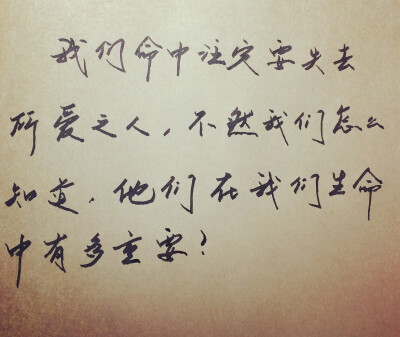 我们命中注定要失去
所爱之人,不然我们怎么
知道,他们在我们生命
中有多重要?